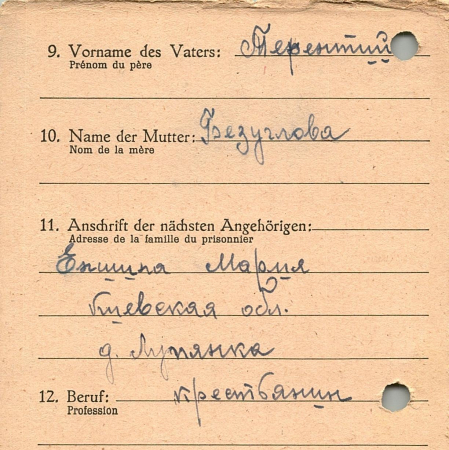 9. Vorname des Vaters: Терентий
Prénom du père
10. Name der Mutter: Безуглова
Nom de la mère
11. Anschrift der nächsten Angehörigen:
Adresse de la famille du prisonnier
Епишина Мария
Киевская обл.
д. Лупянка
12. Beruf: крестьянин
Profession